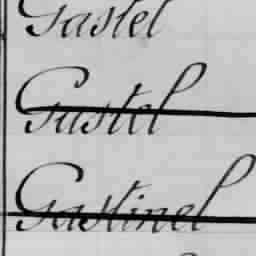 Gastel
Gastel
Gastinel